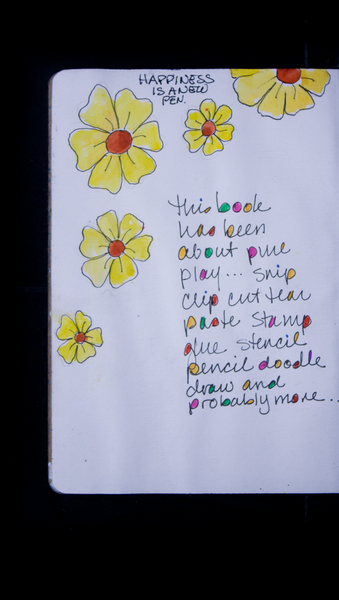 HAPPINESS
IS A NEW
PEN.
this book
has been
about pure
play... snip
clip cut tear
paste stamp
glue stencil
pencil doodle
draw and
probably more...